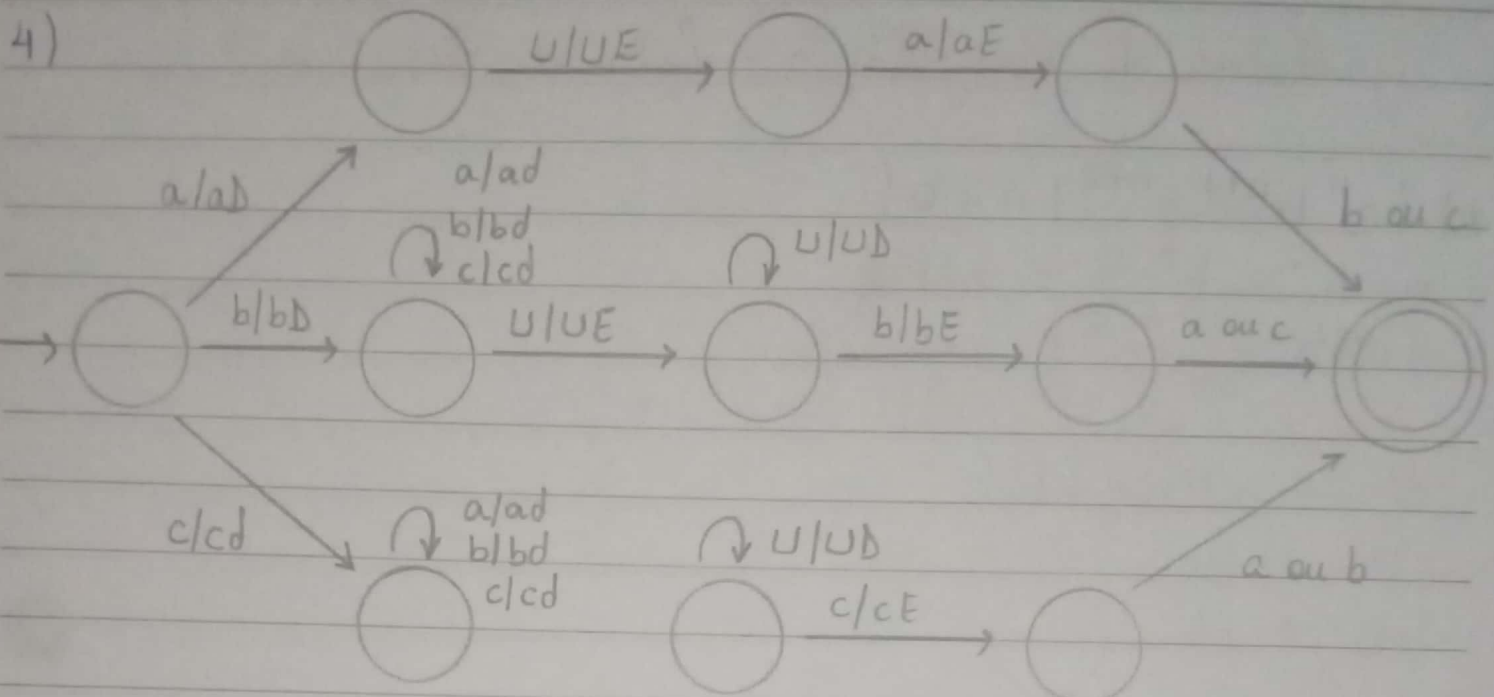 4)
U/UE
a/aE
a/aD
a/ad
b/bd
c/cd
U/UD
b ou c
b/bD
U/UE
b/bE
a ou c
c/cd
a/ad
b/bd
c/cd
U/UD
c/cE
a ou b